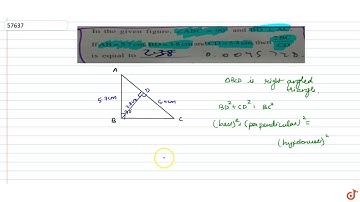 57637
In the given figure, ∠ABC = 90° and BD ⊥ AC
If AB = 5.7 cm, BD = 3.8 cm and CD = 5.4 cm, then
is equal to 2.38
A
5.7cm
D
3.8cm
5.4cm
B
C
△BCD is right angled
triangle.
BD² + CD² = BC²
(base)² + (perpendicular)² =
(hypotenuse)²